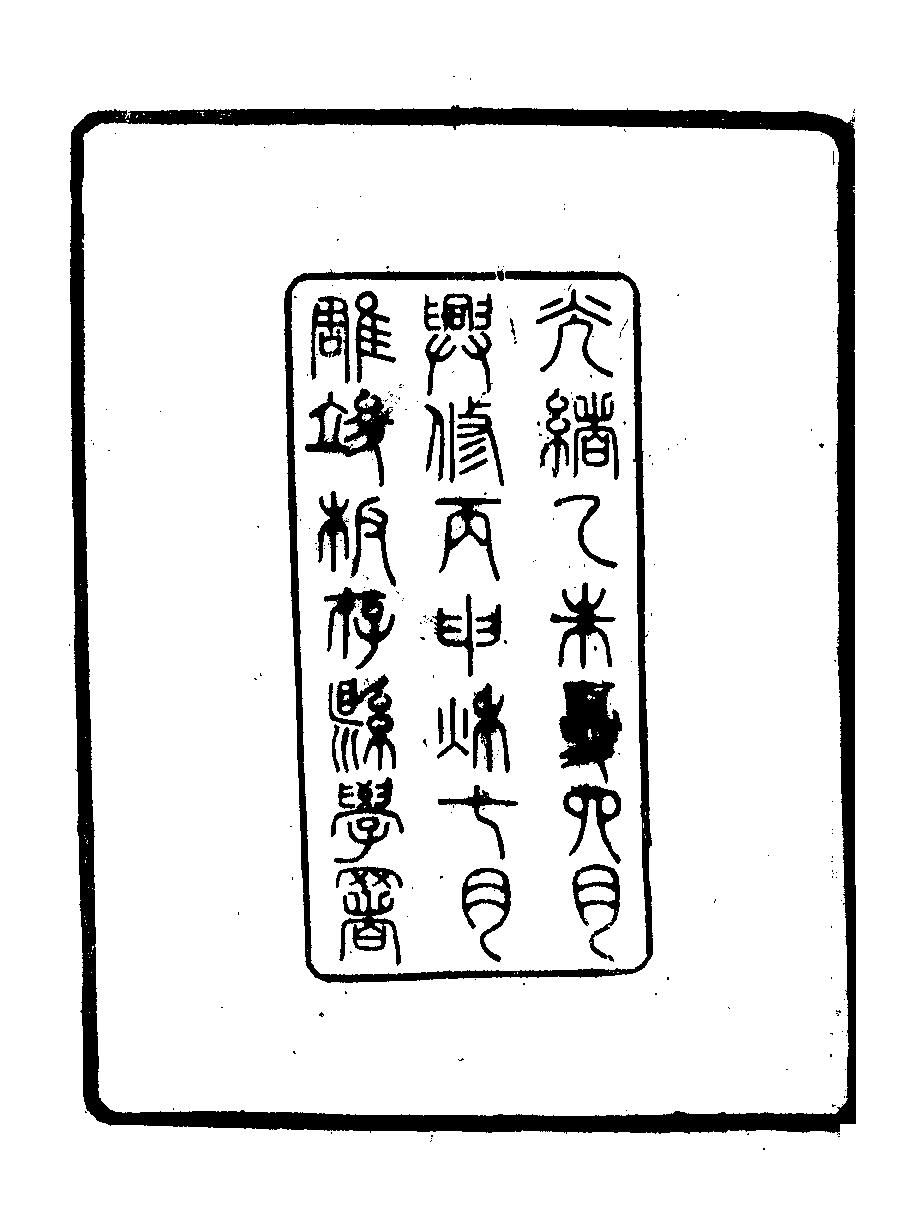 光緒乙未夏四月
興修丙申秌七月
雕竣板存縣學署